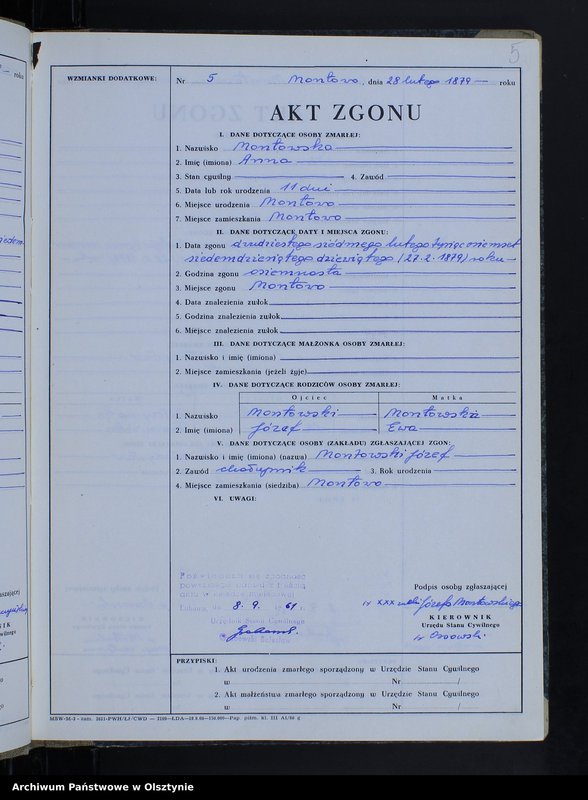 5
WZMIANKI DODATKOWE:
Nr 5 Montowo, dnia 28 lutego 1879 — roku
AKT ZGONU
I. DANE DOTYCZĄCE OSOBY ZMARŁEJ:
1. Nazwisko Montowska
2. Imię (imiona) Anna
3. Stan cywilny 4. Zawód
5. Data lub rok urodzenia 11 dni
6. Miejsce urodzenia Montowo
7. Miejsce zamieszkania Montowo
II. DANE DOTYCZĄCE DATY I MIEJSCA ZGONU:
1. Data zgonu dwudziestego siódmego lutego tysiąc osiemset
siedemdziesiątego dziewiątego (27.2.1879) roku
2. Godzina zgonu osiemnasta
3. Miejsce zgonu Montowo
4. Data znalezienia zwłok
5. Godzina znalezienia zwłok
6. Miejsce znalezienia zwłok
III. DANE DOTYCZĄCE MAŁŻONKA OSOBY ZMARŁEJ:
1. Nazwisko i imię (imiona)
2. Miejsce zamieszkania (jeżeli żyje)
IV. DANE DOTYCZĄCE RODZICÓW OSOBY ZMARŁEJ:
Ojciec Matka
1. Nazwisko Montowski Montowska
2. Imię (imiona) Józef Ewa
V. DANE DOTYCZĄCE OSOBY (ZAKŁADU) ZGŁASZAJĄCEJ ZGON:
1. Nazwisko i imię (imiona) (nazwa) Montowski Józef
2. Zawód chałupnik 3. Rok urodzenia
4. Miejsce zamieszkania (siedziba) Montowo
VI. UWAGI:
Poświadcza się zgodność
8. 9. 1961 r.
Urzędu Stanu Cywilnego
Podpis osoby zgłaszającej
xxx Józefa Montowskiego
KIEROWNIK
Urzędu Stanu Cywilnego
Ossowski
PRZYPISKI:
1. Akt urodzenia zmarłego sporządzony w Urzędzie Stanu Cywilnego
w Nr /
2. Akt małżeństwa zmarłego sporządzony w Urzędzie Stanu Cywilnego
w Nr /
Archiwum Państwowe w Olsztynie